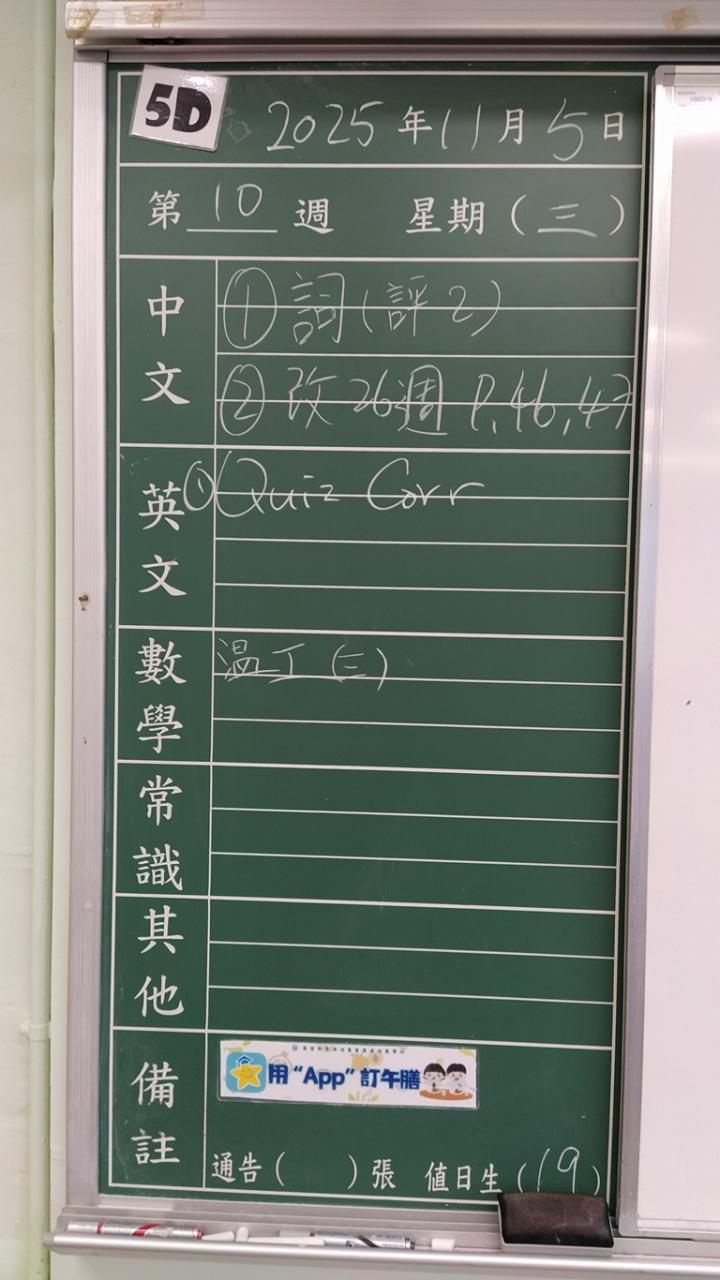 5D
2025年11月5日
第10週 星期(三)
中文
①詞(評2)
②改26週 P.46,47
英文
①Quiz Corr
數學
温工(三)
常識
其他
備註
用“App”訂午膳
通告( )張 值日生(19)